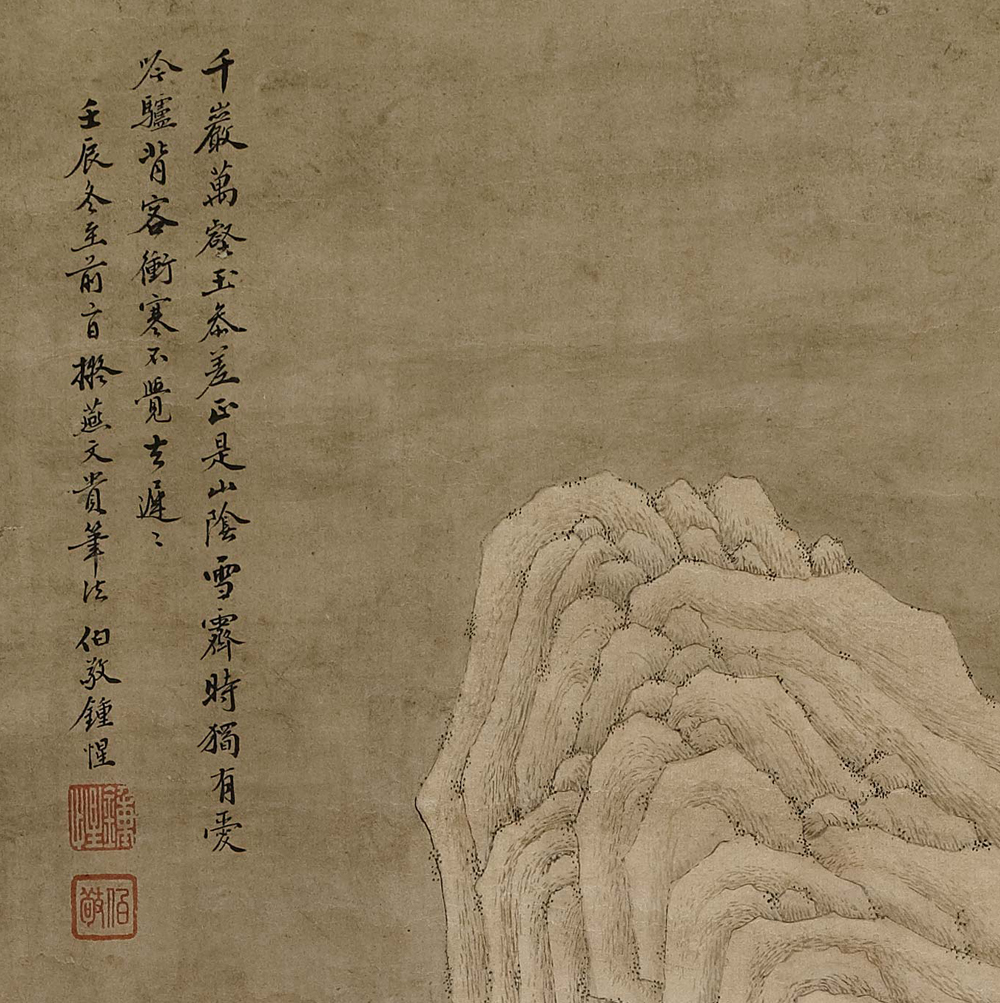 千巖萬壑玉叅差正是山陰雪霽時獨有愛
吟驢背客衝寒不覺去遲〻
壬辰冬至前一日擬燕文貴筆法 伯敬鍾惺
鍾惺
伯敬